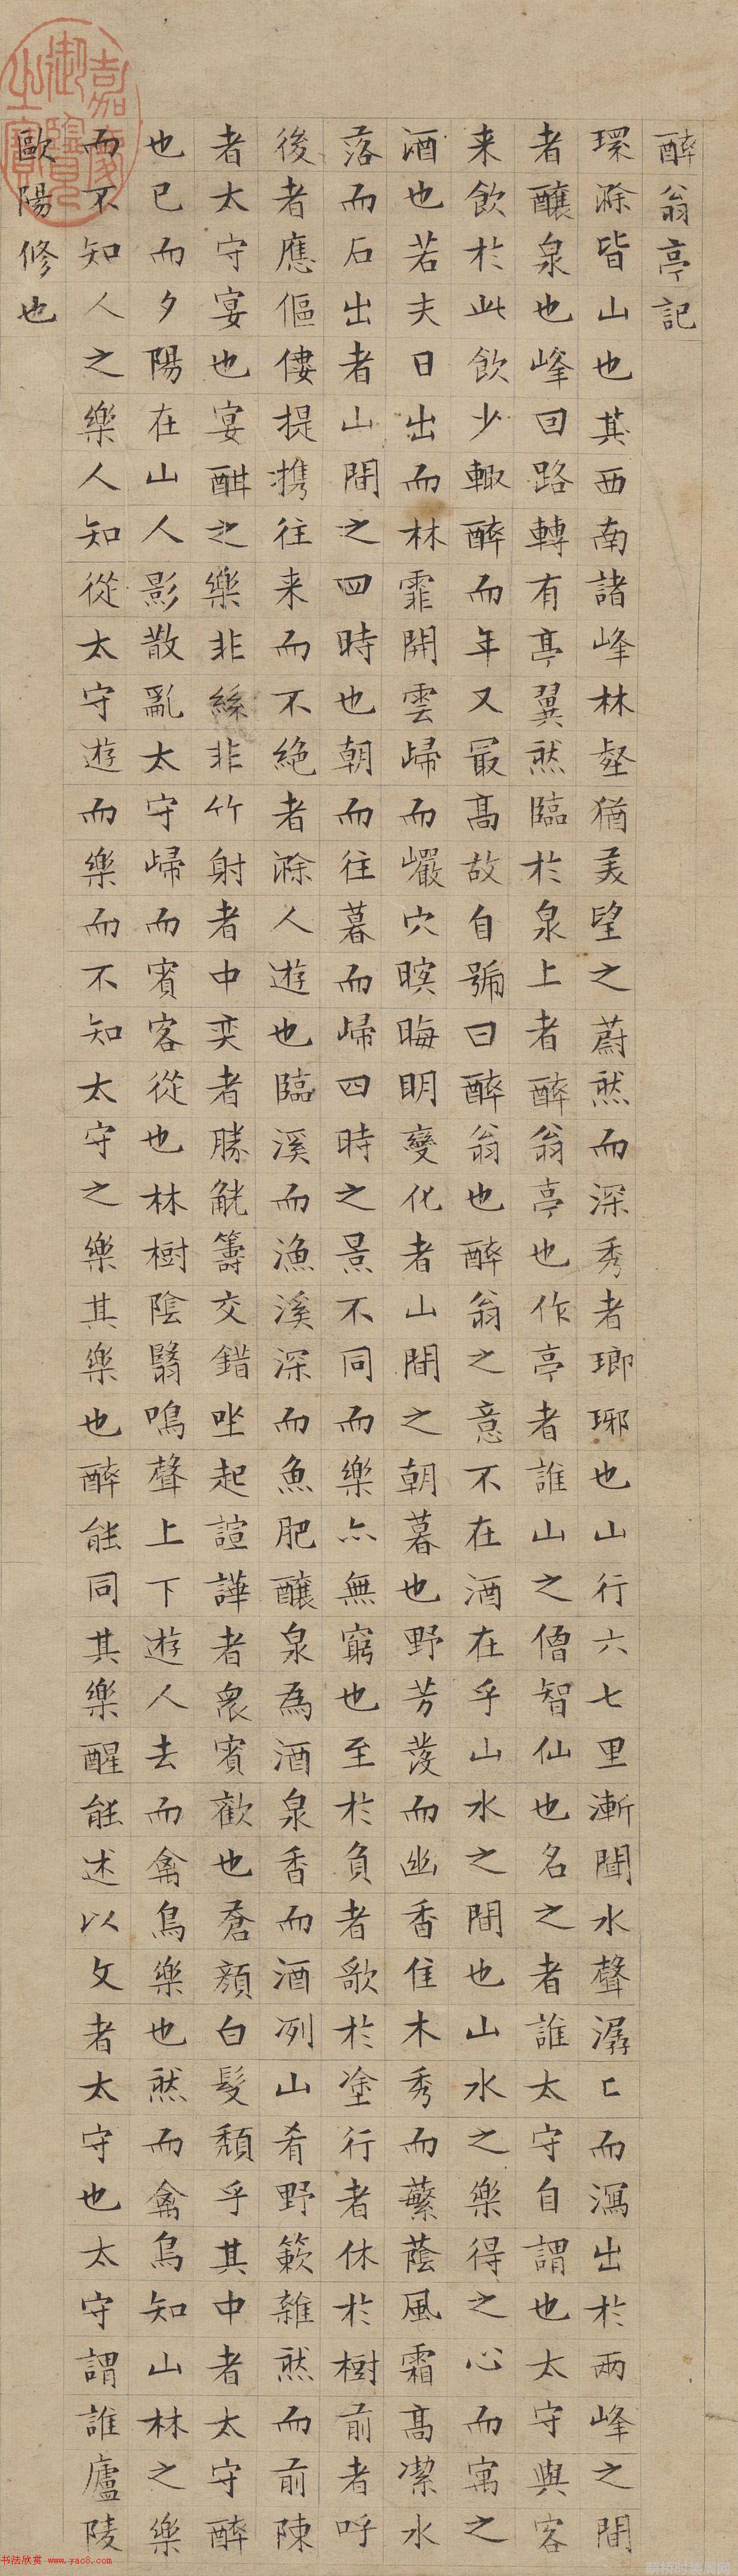 醉翁亭記
環滁皆山也其西南諸峰林壑猶美望之蔚然而深秀者瑯琊也山行六七里漸聞水聲潺〻而瀉出於兩峰之間
者釀泉也峰回路轉有亭翼然臨於泉上者醉翁亭也作亭者誰山之僧智仙也名之者誰太守自謂也太守與客
来飲於此飲少輒醉而年又最高故自號曰醉翁也醉翁之意不在酒在乎山水之間也山水之樂得之心而寓之
酒也若夫日出而林霏開雲歸而巖穴暝晦明變化者山間之朝暮也野芳發而幽香佳木秀而蘩蔭風霜高潔水
落而石出者山間之四時也朝而往暮而歸四時之景不同而樂亦無窮也至於負者歌於塗行者休於樹前者呼
後者應傴僂提携往来而不絕者滁人遊也臨溪而漁溪深而魚肥釀泉為酒泉香而酒冽山肴野簌雜然而前陳
者太守宴也宴酣之樂非絲非竹射者中奕者勝觥籌交錯坐起諠譁者衆賓歡也蒼顏白髮頹乎其中者太守醉
也已而夕陽在山人影散亂太守歸而賓客從也林樹陰翳鳴聲上下遊人去而禽鳥樂也然而禽鳥知山林之樂
而不知人之樂人知從太守遊而樂而不知太守之樂其樂也醉能同其樂醒能述以文者太守也太守謂誰廬陵
歐陽修也
嘉慶御覽之寶
书法欣赏 www.yac8.com